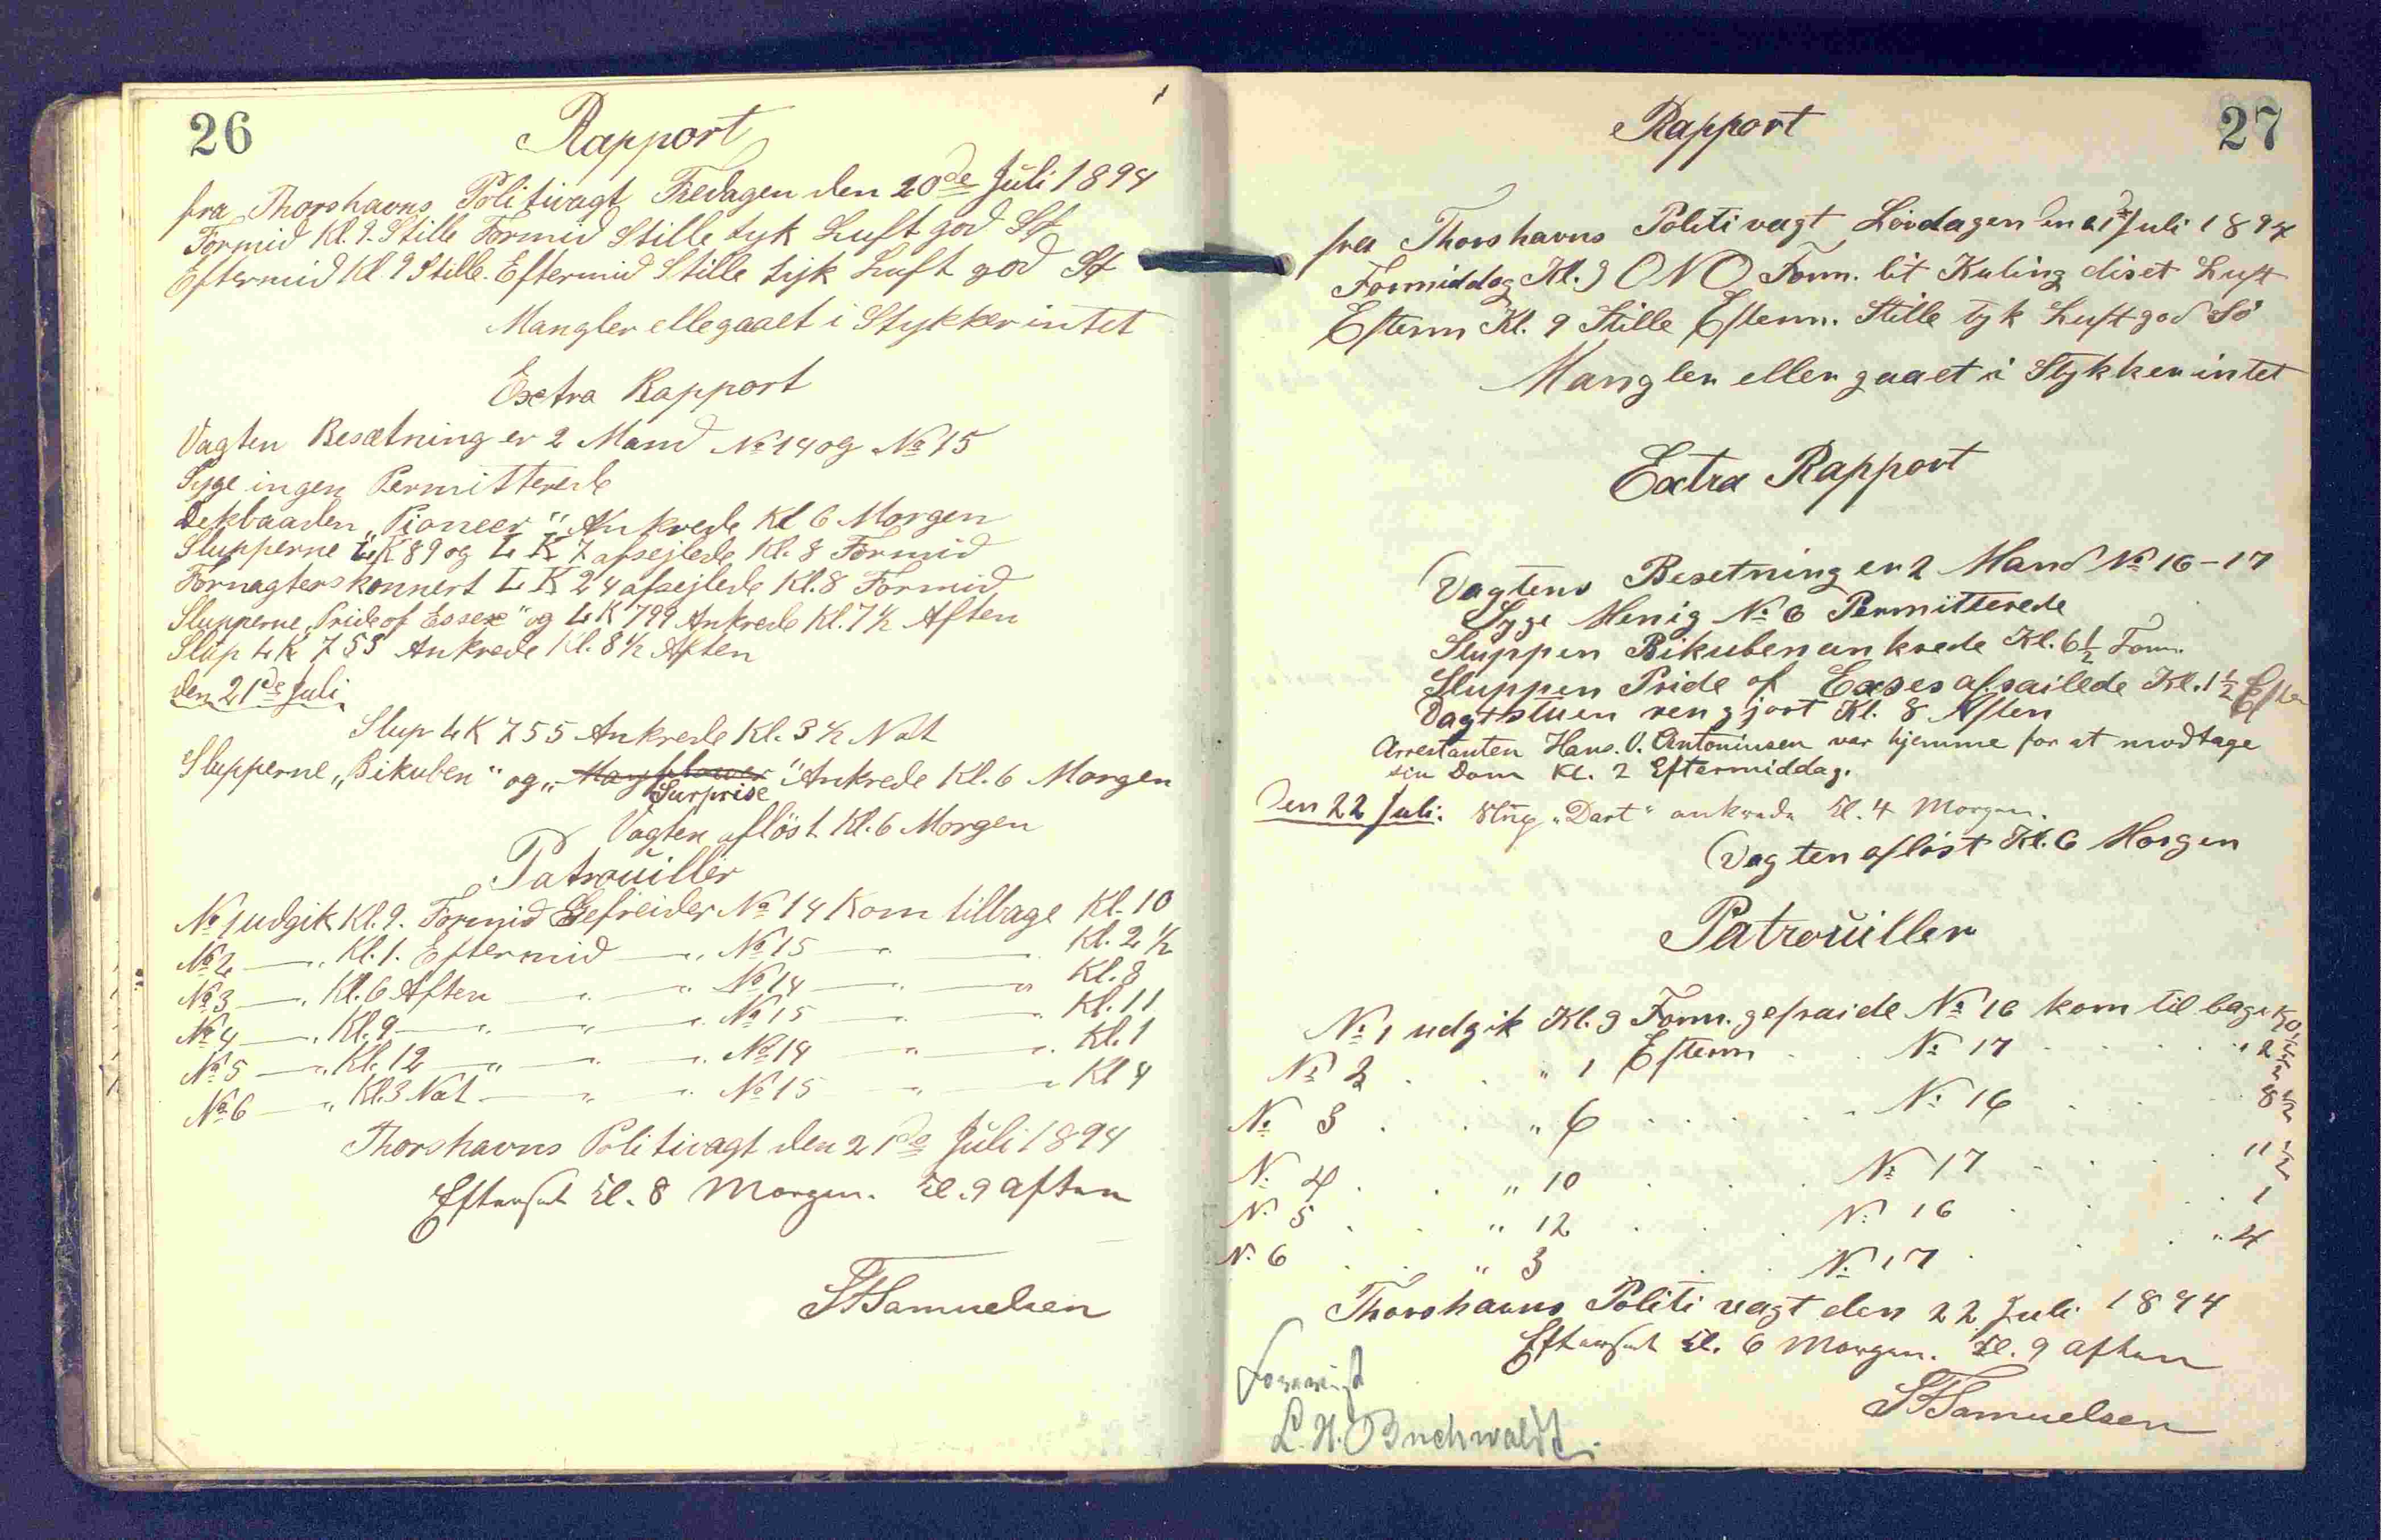 26
Rapport
fra Thorshavns Politivagt Fredagen den 20de Juli 1894
Formid Kl. 9. Stille Formid Stille tyk Luft god Sø
Eftermid Kl. 9 Stille. Eftermid Stille tyk Luft god Sø
Mangler ellegaaet i Stykker intet
Extra Rapport
Vagten Besætning er 2 Mand No 14 og No 15
Syge ingen Permitterede
Dekbaaden „Pioneer" Ankrede Kl 6 Morgen
Slupperne LK 89 og LK 7 afsejlede Kl. 8 Formid
Fornagterskonnert LK 24 afsejlede Kl. 8 Formid
Slupperne „Pride of Essex" og LK 799 Ankrede Kl. 7 1/2 Aften
Slup LK 755 Ankrede Kl. 8 1/2 Aften
den 21de Juli
Slup LK 755 Ankrede Kl. 3 1/2 Nat
Slupperne „Bikuben" og „Mayflower" Ankrede Kl. 6 Morgen
Surprise
Vagten afløst Kl. 6 Morgen
Patrouiller
No 1 udgik Kl. 9. Formid Gefreider No 14 Kom tilbage Kl. 10
No 2 —„ Kl. 1. Eftermid —„ No 15 —„ —„ Kl. 2 1/2
No 3 —„ Kl. 6 Aften —„ —„ No 14 —„ —„ Kl. 8
No 4 —„ Kl. 9 —„ —„ —„ No 15 —„ —„ Kl. 11
No 5 —„ Kl. 12 —„ —„ —„ No 14 —„ —„ Kl. 1
No 6 —„ Kl. 3 Nat —„ —„ No 15 —„ —„ Kl 4
Thorshavns Politivagt den 21de Juli 1894
Efterset Kl. 8 Morgen. Kl. 9 Aften
Samuelsen
27
Rapport
fra Thorshavns Politivagt Lørdagen den 21de Juli 1894
Formiddag Kl. 9 ONO Form. lit Kuling diset Luft
Efterm Kl. 9 Stille Efterm. Stille tyk Luft god Sø
Mangler eller gaaet i Stykker intet
Extra Rapport
Vagtens Besetning er 2 Mand No 16-17
Syge Menig No 6 Permitterede
Sluppen Bikuben ankrede Kl. 6 1/2 Form.
Sluppen Pride of Exses afsailede Kl. 1 1/2 Efter
Vagtstuen rengjort Kl. 8 Aften
Arrestanten Hans. O. Antoniusen var hjemme for at modtage
sin Dom Kl. 2 Eftermiddag.
Den 22 Juli. Slup „Dart" ankrede Kl. 4 Morgen.
Vagten afløst Kl. 6 Morgen
Patrouiller
No 1 udgik Kl. 9 Form. gefraide No 16 kom tilbage
No 2 . . „ 1 Efterm . . No 17 . . . „ 2 1/2
No 3 . . „ 6 . . . No 16 . . 8 1/2
No 4 . . „ 10 . . No 17 . . . 11 1/2
No 5 . . „ 12 . . No 16 . . . 1
No 6 . . „ 3 . . No 17 . . . „ 4
Thorshavns Politivagt den 22 Juli 1894
Efterset Kl. 6 Morgen. Kl. 9 aften
Samuelsen
L. H. Buchwaldt.